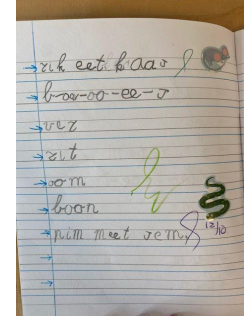 rik eet kaas
b-aa-oo-ee-s
ver
rit
oom
boon
pim meet sem
12/10